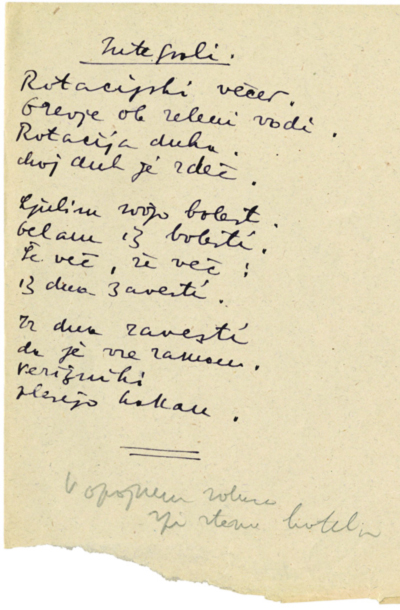 Integrali.
Rotacijski večer.
Drevje ob zeleni vodi.
Rotacija duha.
Moj duh je rdeč.
Ljubim svojo bolest.
Delam iz bolesti.
Še več, še več:
iz dna zavesti.
Iz dna zavesti
da je vse zaman.
Verižniki
plešejo kankan.
V opojnem